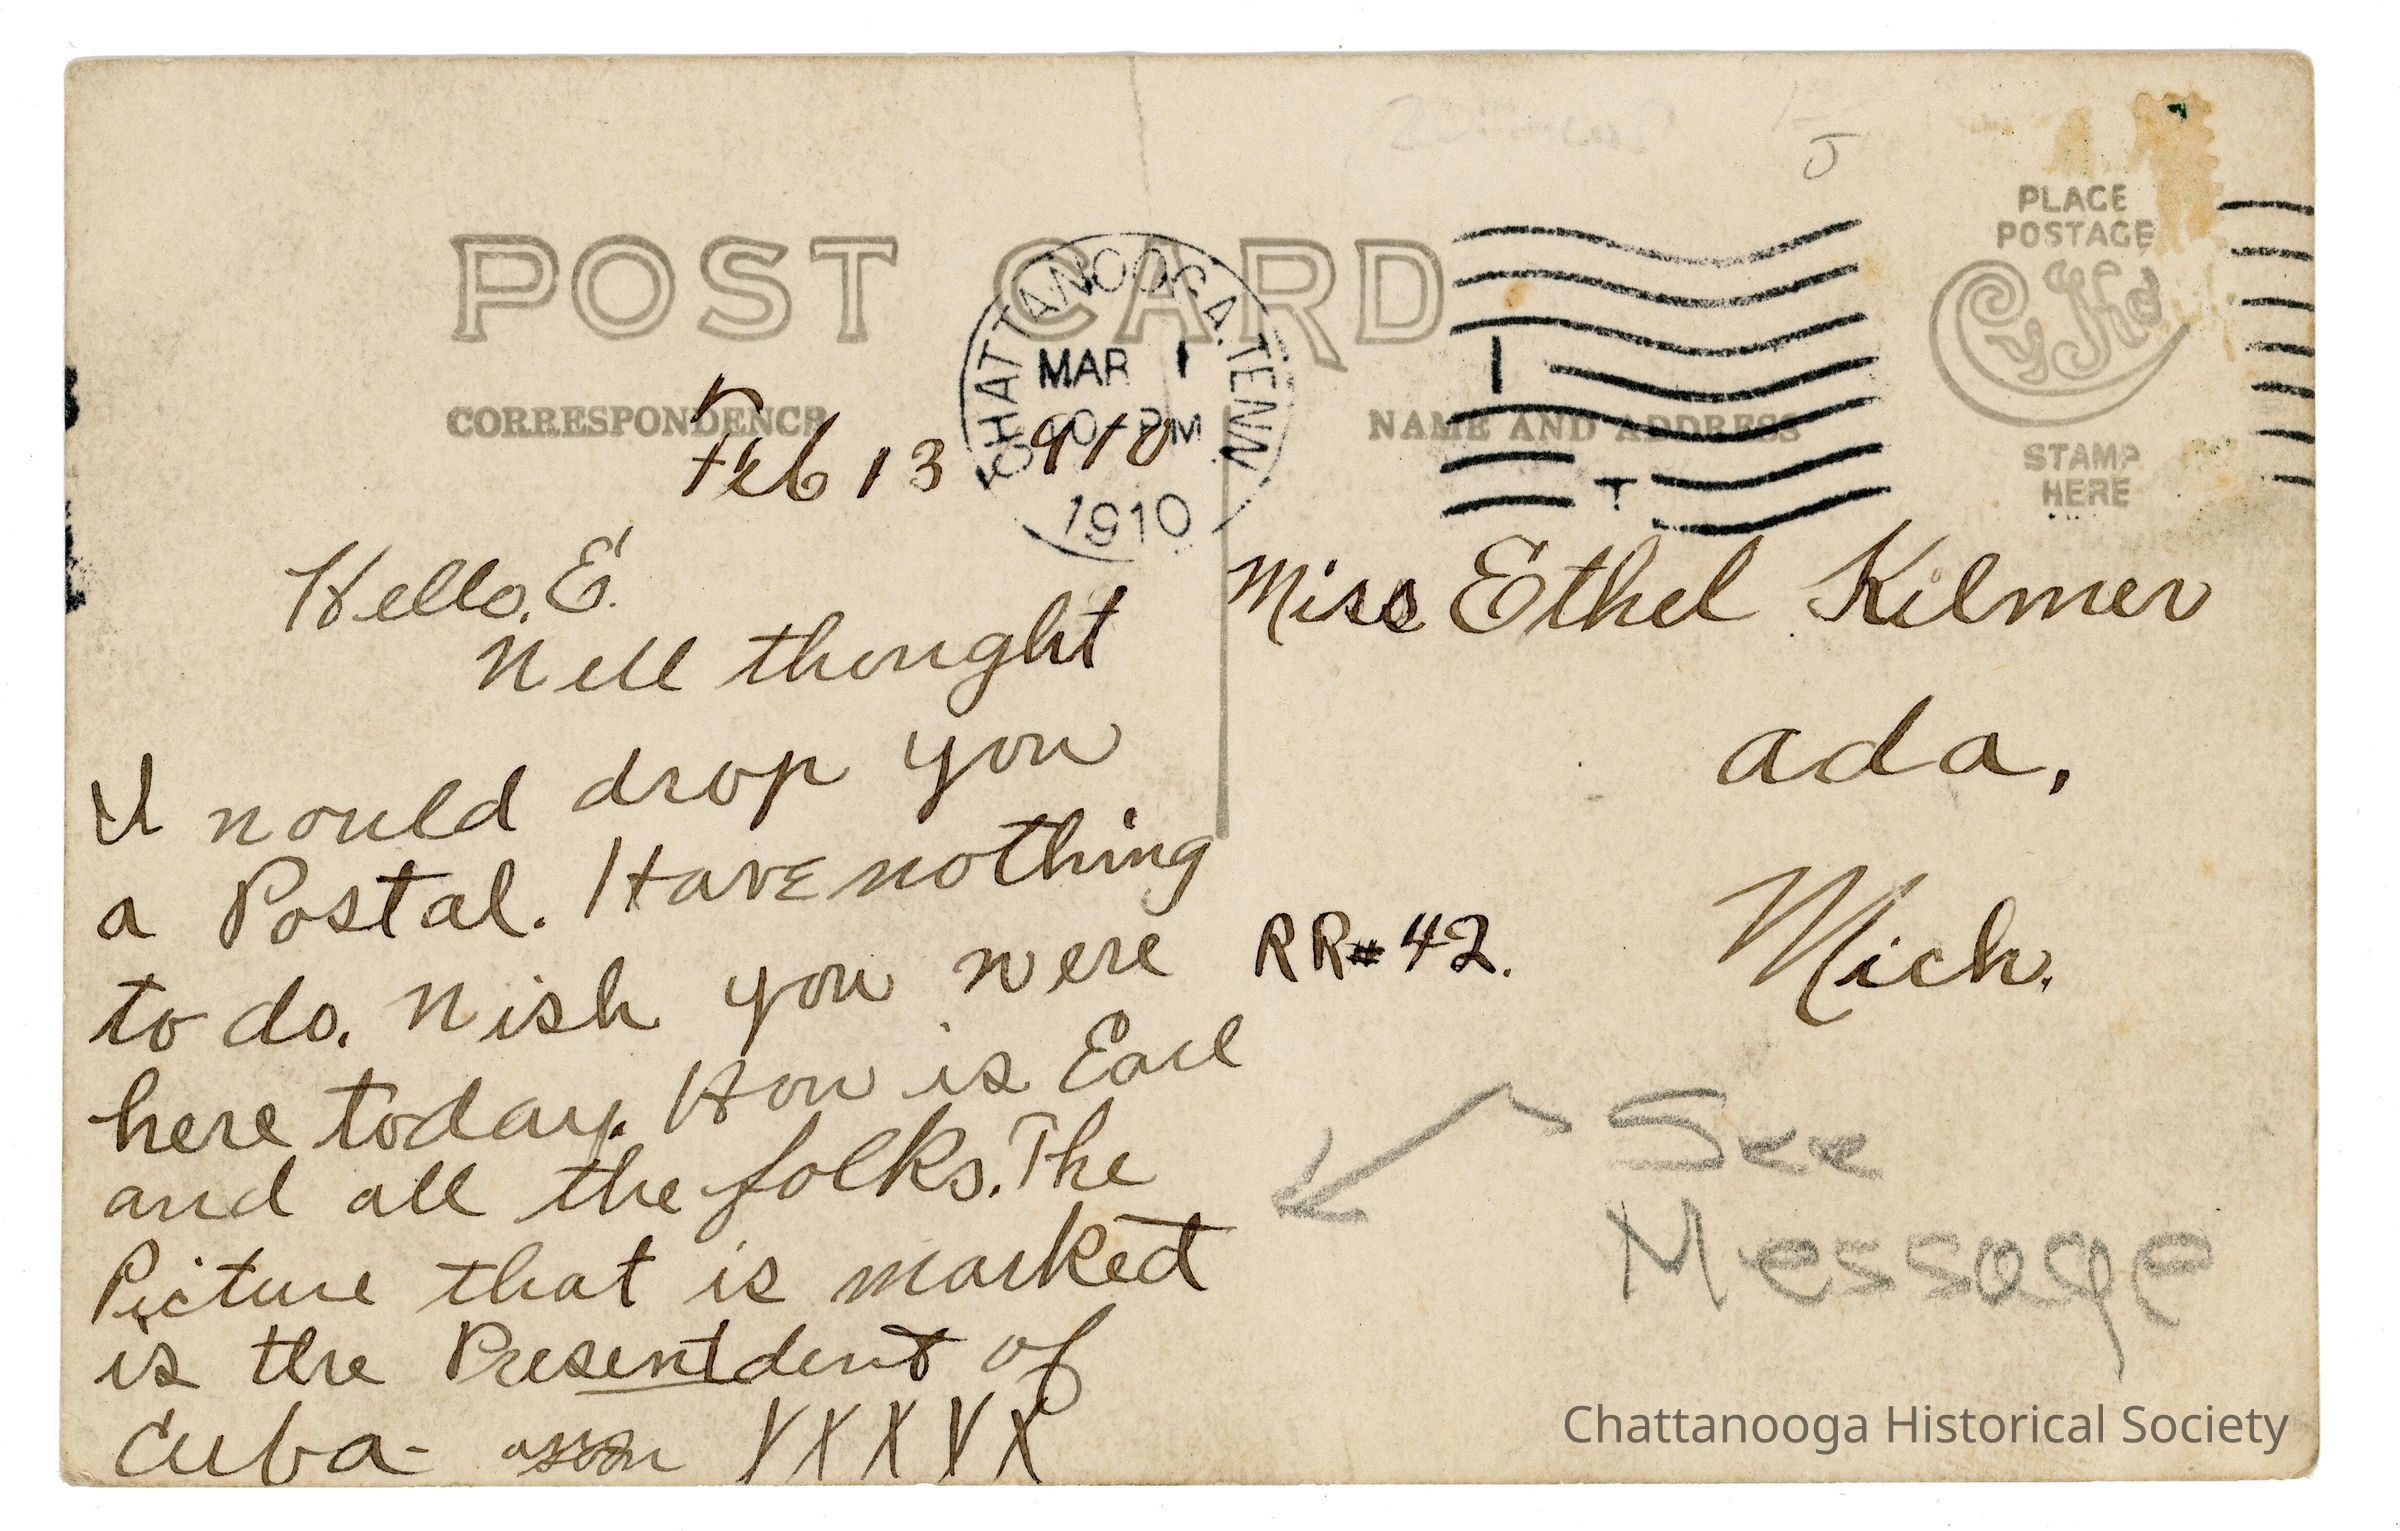 POST CARD
CHATTANOOGA. TENN.
MAR 1
PM
1910
PLACE
POSTAGE
CYKO
STAMP
HERE
CORRESPONDENCE
NAME AND ADDRESS
Feb 13 1910
Hello. E.
Well thought
I would drop you
a Postal. Have nothing
to do. Wish you were
here today. How is Earl
and all the folks. The
Picture that is marked
is the Presentdent of
Cuba- XXXXX
Miss Ethel Kilmer
ada,
Mich.
RR#42.
See
Message
Chattanooga Historical Society